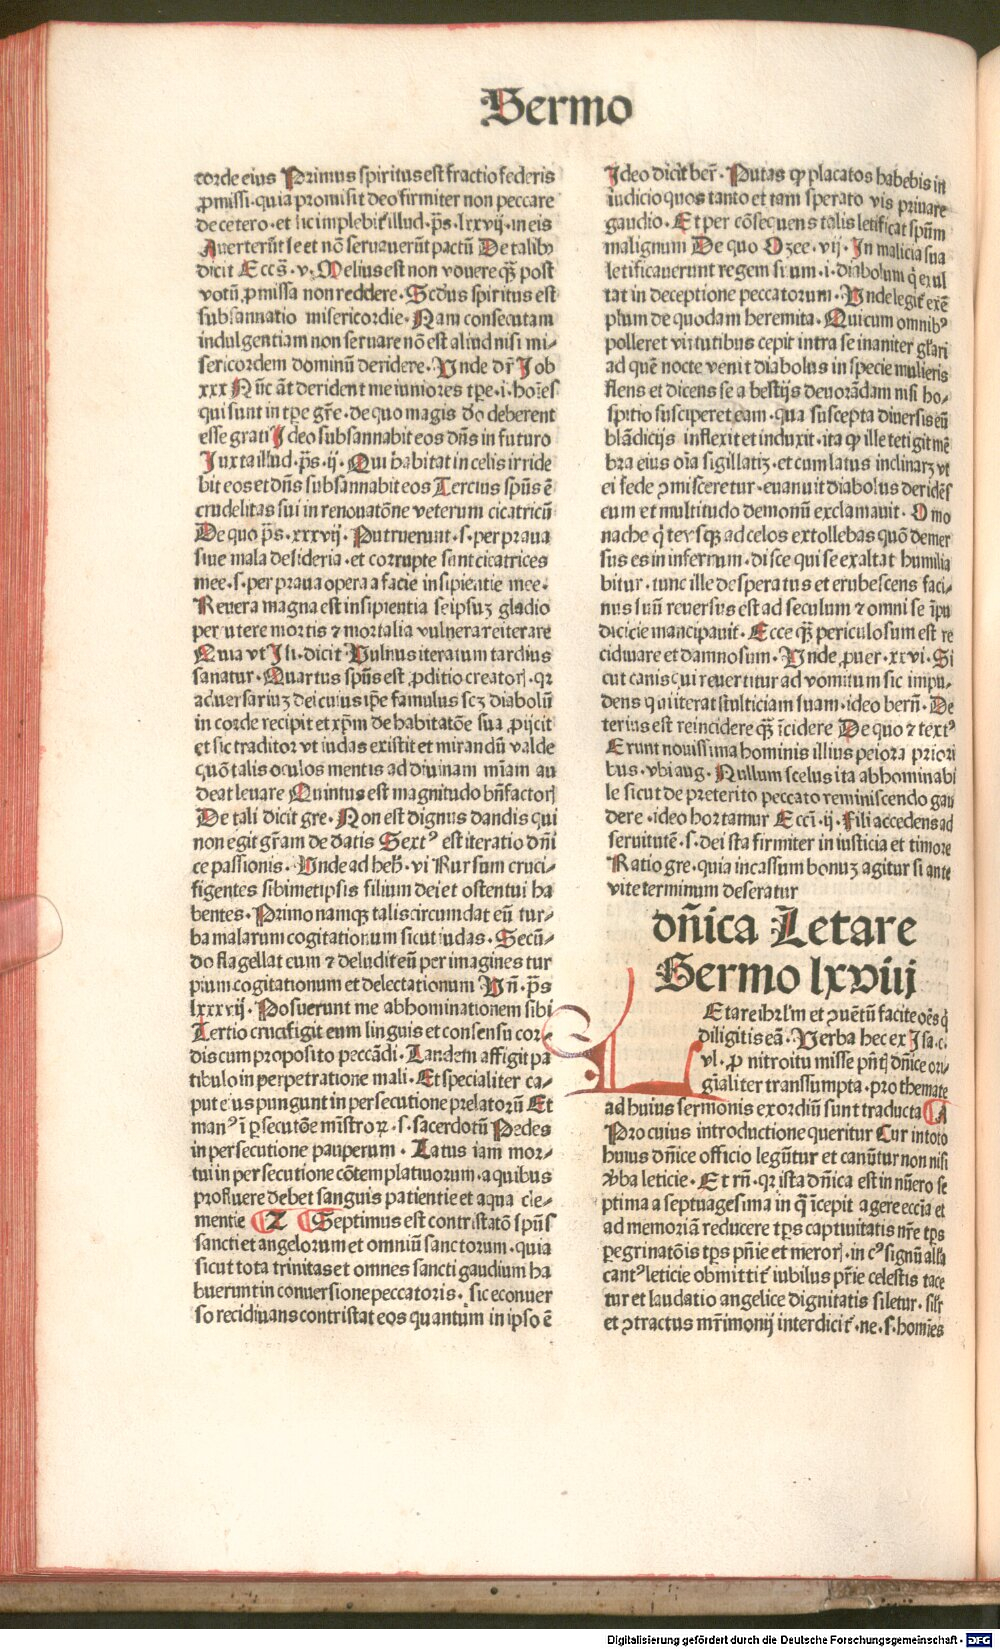 Sermo
corde eius Primus spiritus est fractio federis
ꝓmissi·quia promisit deo firmiter non peccare
de cetero·et sic implebit᷑ illud·p̄s·lxxvij·in eis
Auerterūt se et nō seruauerūt pactū De talibꝰ
dicit Eccs̄·v·Melius est non vouere qꝫ̄ post
votū ꝓmissa non reddere·Scd̄us spiritus est
subsannatio misericordie·Nam consecutam
indulgentiam non seruare nō est aliud nisi mi-
sericordem dominū deridere·Vnde dr̄ Job
xxx Nūc āt derident me iuniores tꝑe·i·hoīes
qui sunt in tꝑe gr̄e·de quo magis deo deberent
esse grati Ideo subsannabit eos dn̄s in futuro
Iuxta illud·p̄s·ij·Qui habitat in celis irride
bit eos et dn̄s subsannabit eos Tercius spūs ē
crudelitas sui in renouatōne veterum cicatricū
De quo p̄s·xxxvij·Putruerunt·s·per praua
siue mala desideria·et corrupte sunt cicatrices
mee·s·per praua opera a facie insipientie mee·
Reuera magna est insipientia seipsuꝫ gladio
percutere mortis ⁊ mortalia vulnera reiterare
Quia vt Isi·dicit Vulnus iteratum tardius
sanatur·Quartus spūs est ꝓditio creatorꝭ·qꝛ
aduersariuꝫ dei cuius ip̄e famulus scꝫ diabolū
in corde recipit et xp̄m de habitatōe sua ꝓijcit
et sic traditor vt iudas existit et mirandū valde
quō talis oculos mentis ad diuinam miam au
deat leuare Quintus est magnitudo bn̄factorꝭ
De tali dicit gre·Non est dignus dandis qui
non egit gr̄am de datis Sextꝰ est iteratio dn̄i
ce passionis·Vnde ad heb̄·vi Rursum cruci-
figentes sibimetipsis filium dei et ostentui ha
bentes·Primo namqꝫ talis circumdat eū tur-
ba malarum cogitationum sicut iudas·Secū-
do flagellat eum ⁊ deludit eū per imagines tur
pium cogitationum et delectationum Vn̄·p̄s
lxxxvij·Posuerunt me abhominationem sibi
Tertio crucifigit eum linguis et consensu cor-
dis cum proposito peccādi·Tandem affigit pa
tibulo in perpetratione mali·Et specialiter ca-
put eius pungunt in persecutione prelatorū Et
manꝰ ī ꝑsecutōe mīstroꝝ·s·sacerdotū Pedes
in persecutione pauperum·Latus iam mor-
tui in persecutione cōtemplatiuorum·a quibus
profluere debet sanguis patientie et aqua cle-
mentie Z Septimus est contristatō spūs
sancti et angelorum et omniū sanctorum·quia
sicut tota trinitas et omnes sancti gaudium ha
buerunt in conuersione peccatoris·sic econuer
so recidiuans contristat eos quantum in ipso ē
Ideo dicit ber̄·Putas qꝙ placatos habebis in
iudicio quos tanto et tam sperato vis priuare
gaudio·Et per cōsequens talis letificat spūm
malignum De quo Ozee·vij·In malicia sua
letificauerunt regem suum·i·diabolum q̇ exul
tat in deceptione peccatorum·Vnde legit᷑ exē
plum de quodam heremita·Qui cum omnibꝰ
polleret virtutibus cepit intra se inaniter gl̄ari
ad quē nocte venit diabolus in specie mulieris
flens et dicens se a bestijs deuorādam nisi ho-
spitio susciperet eam·qua suscepta diuersis eū
blādicijs inflexit et induxit·ita qꝙ ille tetigit mē
bra eius oīa sigillatiꝫ·et cum latus inclinarꝫ vt
ei fede ꝯmisceretur·euanuit diabolus deridēs
eum et multitudo demonū exclamauit·O mo
nache q̇ te vsqꝫ ad celos extollebas quō demer
sus es in infernum·disce qui se exaltat humilia
bitur·tunc ille desperatus et erubescens faci-
nus suū reuersus est ad seculum ⁊ omni se īpu
dicicie mancipauit·Ecce qꝫ̄ periculosum est re
cidiuare et damnosum·Vnde ꝓuer·xxvi·Si
cut canis qui reuertitur ad vomitum sic impu-
dens qui iterat stulticiam suam·ideo bern̄·De
terius est reincidere qꝫ̄ īcidere De quo ⁊ textꝰ
Erunt nouissima hominis illius peiora priori
bus·vbi aug·Nullum scelus ita abhominabi
le sicut de preterito peccato reminiscendo gau
dere·ideo hortamur Eccī·ij·Fili accedens ad
seruitutē·s·dei sta firmiter in iusticia et timore
Ratio gre·quia incassum bonuꝫ agitur si ante
vite terminum deseratur
dn̄ica Letare
Sermo lxviij
Letare ihrl̄m et ꝯuētū facite oēs q̇
diligitis eā·Verba hec ex Isa·c·
vl·ꝓ nitroitu misse pn̄tꝭ dn̄ice ori-
gīaliter transsumpta·pro themate
ad huius sermonis exordiū sunt traducta A
Pro cuius introductione queritur Cur in toto
huius dn̄ice officio legūtur et canūtur non nisi
ꝟba leticie·Et rn̄·qꝛ ista dn̄ica est in nūero se
ptima a septuagesima in q̄ īcepit agere eccīa et
ad memoriā reducere tꝑs captiuitatis nr̄e tꝑs
ꝑegrinatōis tꝑs pn̄ie et merorꝭ·in cꝰ signū alla
cantꝰ leticie obmittit᷑ iubilus pr̄ie celestis tace
tur et laudatio angelice dignitatis siletur·sil̄r
et ꝯtractus mr̄imonij interdicit᷑·ne·s·homīes
Digitalisierung gefördert durch die Deutsche Forschungsgemeinschaft - DFG